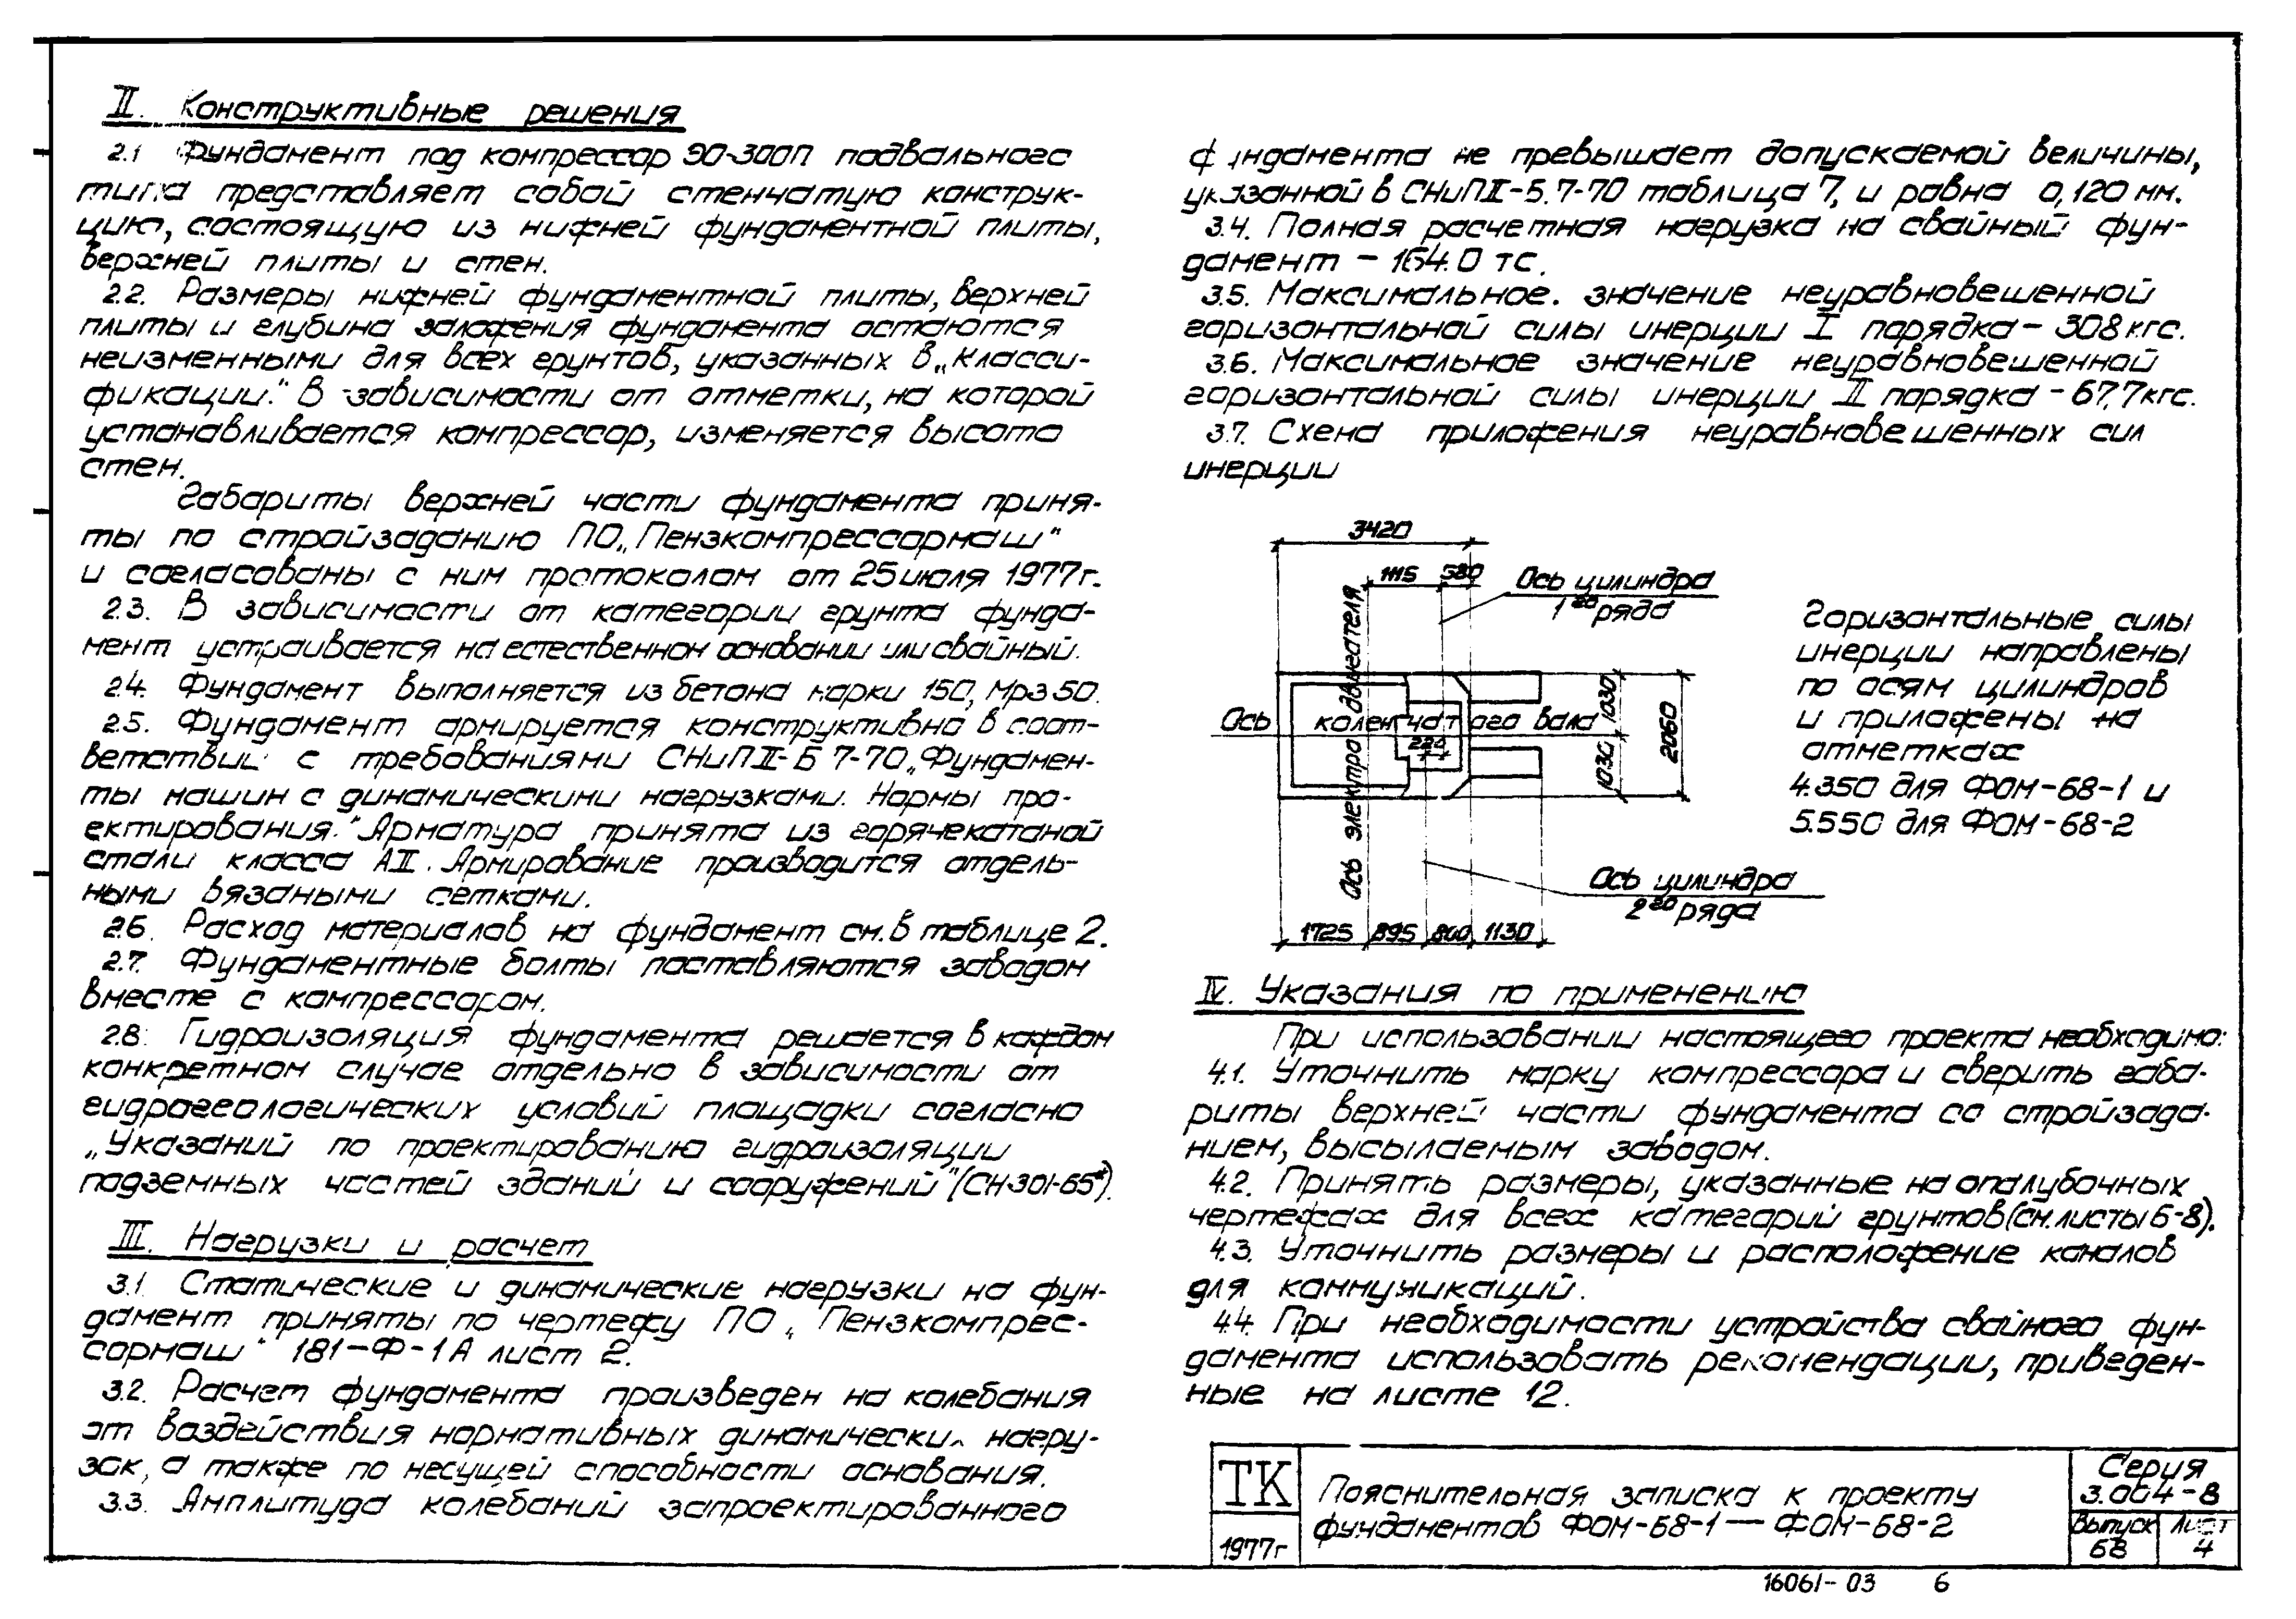 II. Конструктивные решения
2.1 Фундамент под компрессор ЭО-300П подвального
типа представляет собой стенчатую конструк-
цию, состоящую из нижней фундаментной плиты,
верхней плиты и стен.
2.2. Размеры нижней фундаментной плиты, верхней
плиты и глубина заложения фундамента остаются
неизменными для всех грунтов, указанных в „Класси-
фикации." В зависимости от отметки, на которой
устанавливается компрессор, изменяется высота
стен.
Габариты верхней части фундамента приня-
ты по стройзаданию ПО „Пензкомпрессормаш"
и согласованы с ним протоколом от 25 июля 1977г.
2.3. В зависимости от категории грунта фунда-
мент устраивается на естественном основании или свайный.
2.4. Фундамент выполняется из бетона марки 150, Мрз 50.
2.5. Фундамент армируется конструктивно в соот-
ветствии с требованиями СНиП II-Б 7-70 „Фундамен-
ты машин с динамическими нагрузками. Нормы про-
ектирования." Арматура принята из горячекатаной
стали класса АII. Армирование производится отдель-
ными вязаными сетками.
2.6. Расход материалов на фундамент см. в таблице 2.
2.7. Фундаментные болты поставляются заводом
вместе с компрессором.
2.8. Гидроизоляция фундамента решается в каждом
конкретном случае отдельно в зависимости от
гидрогеологических условий площадки согласно
„Указаний по проектированию гидроизоляции
подземных частей зданий и сооружений" (СН 301-65*).
III. Нагрузки и расчет
3.1 Статические и динамические нагрузки на фун-
дамент приняты по чертежу ПО „Пензкомпрес-
сормаш" 181-Ф-1А лист 2.
3.2. Расчет фундамента произведен на колебания
от воздействия нормативных динамических нагру-
зок, а также по несущей способности основания.
3.3. Амплитуда колебаний запроектированного
фундамента не превышает допускаемой величины,
указанной в СНиП II-Б.7-70 таблица 7, и равна 0,120 мм.
3.4. Полная расчетная нагрузка на свайный фун-
дамент - 164.0 тс.
3.5. Максимальное. значение неуравновешенной
горизонтальной силы инерции I порядка - 308 кгс.
3.6. Максимальное значение неуравновешенной
горизонтальной силы инерции II порядка - 67,7 кгс.
3.7. Схема приложения неуравновешенных сил
инерции
3420
1115 580
Ось цилиндра
1го ряда
Ось электродвигателя
Ось коленчатого вала
220
1030 1030
2060
Ось цилиндра
2го ряда
1725 895 800 1130
Горизонтальные силы
инерции направлены
по осям цилиндров
и приложены на
отметках
4.350 для ФОМ-68-1 и
5.550 для ФОМ-68-2
IV. Указания по применению
При использовании настоящего проекта необходимо:
4.1. Уточнить марку компрессора и сверить габа-
риты верхней части фундамента со стройзада-
нием, высылаемым заводом.
4.2. Принять размеры, указанные на опалубочных
чертежах для всех категорий грунтов (см. листы 6-8).
4.3. Уточнить размеры и расположение каналов
для коммуникаций.
4.4. При необходимости устройства свайного фун-
дамента использовать рекомендации, приведен-
ные на листе 12.
ТК
1977г
Пояснительная записка к проекту
фундаментов ФОМ-68-1 — ФОМ-68-2
Серия
3.004-8
Выпуск
68
Лист
4
16061-03 6